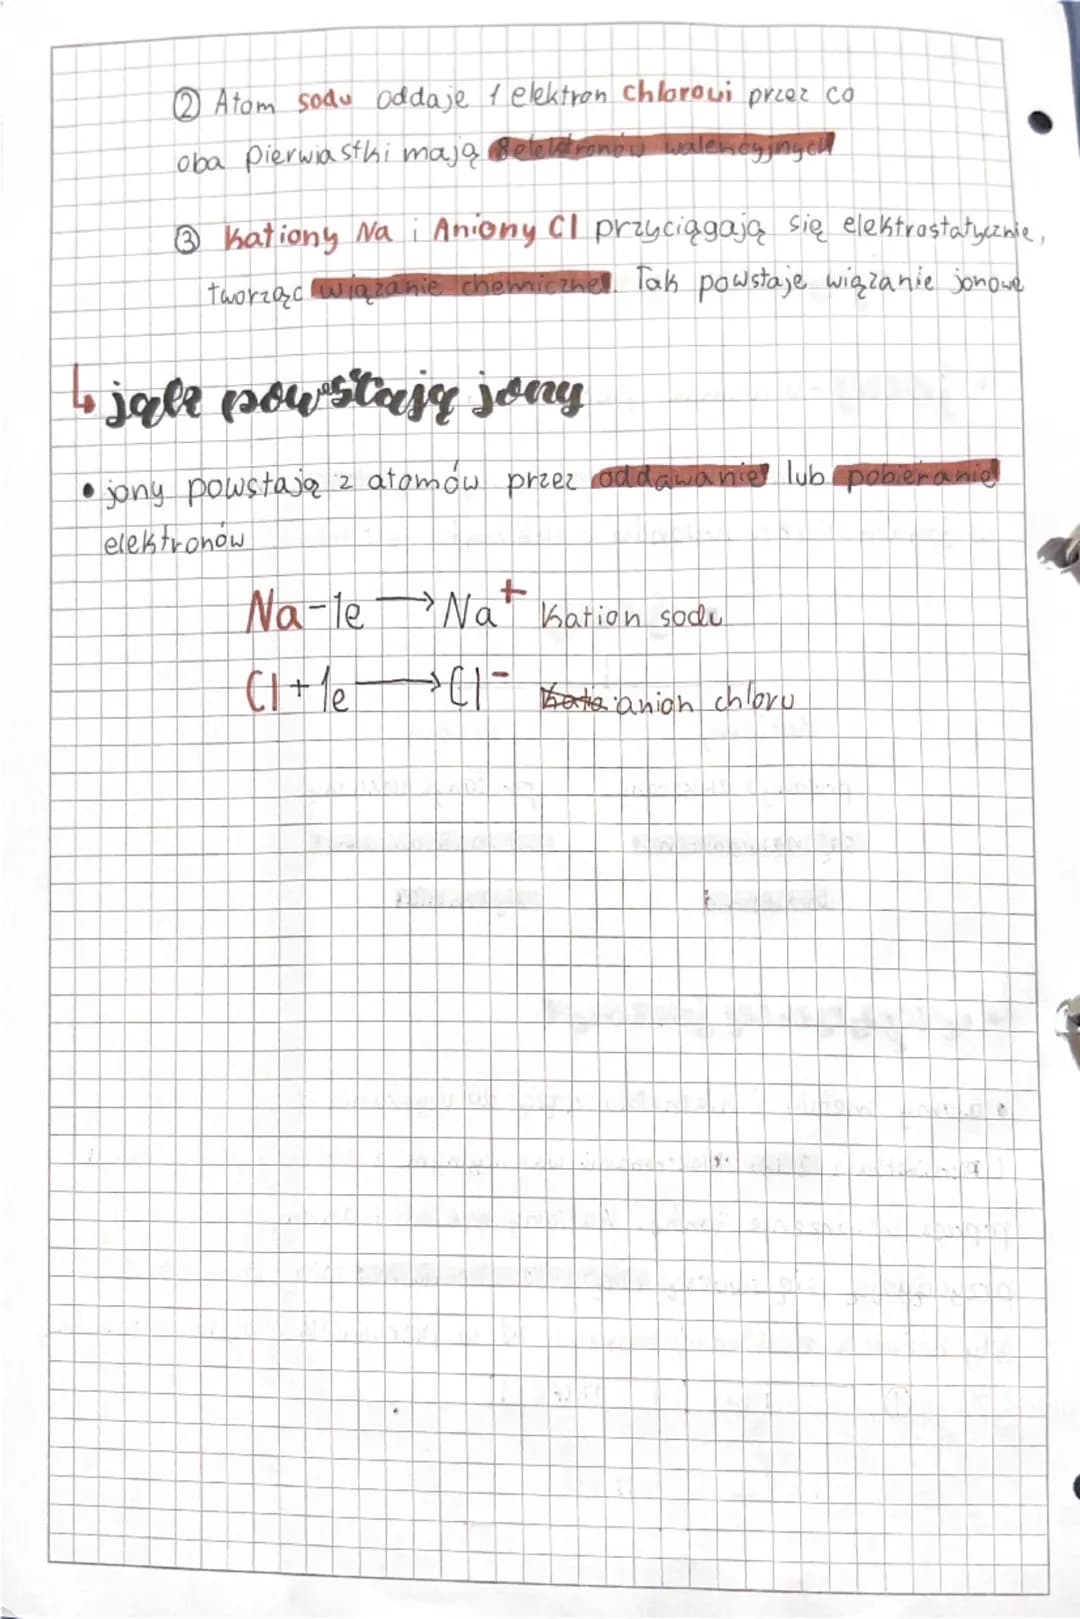 ② Atom sodu oddaje 1 elektron chlorowi przez co
oba pierwiastki mają 8elektronów walencyjnych
③ Kationy Na i Aniony Cl przyciągają się elektrostatycznie,
tworząc wiązanie chemiczne. Tak powstaje wiązanie jonowe
↳ jak powstają jony
• jony powstają z atomów przez oddawanie lub pobieranie
elektronów
Na-1e → Na⁺ Kation sodu
Cl+1e → Cl⁻ anion chloru